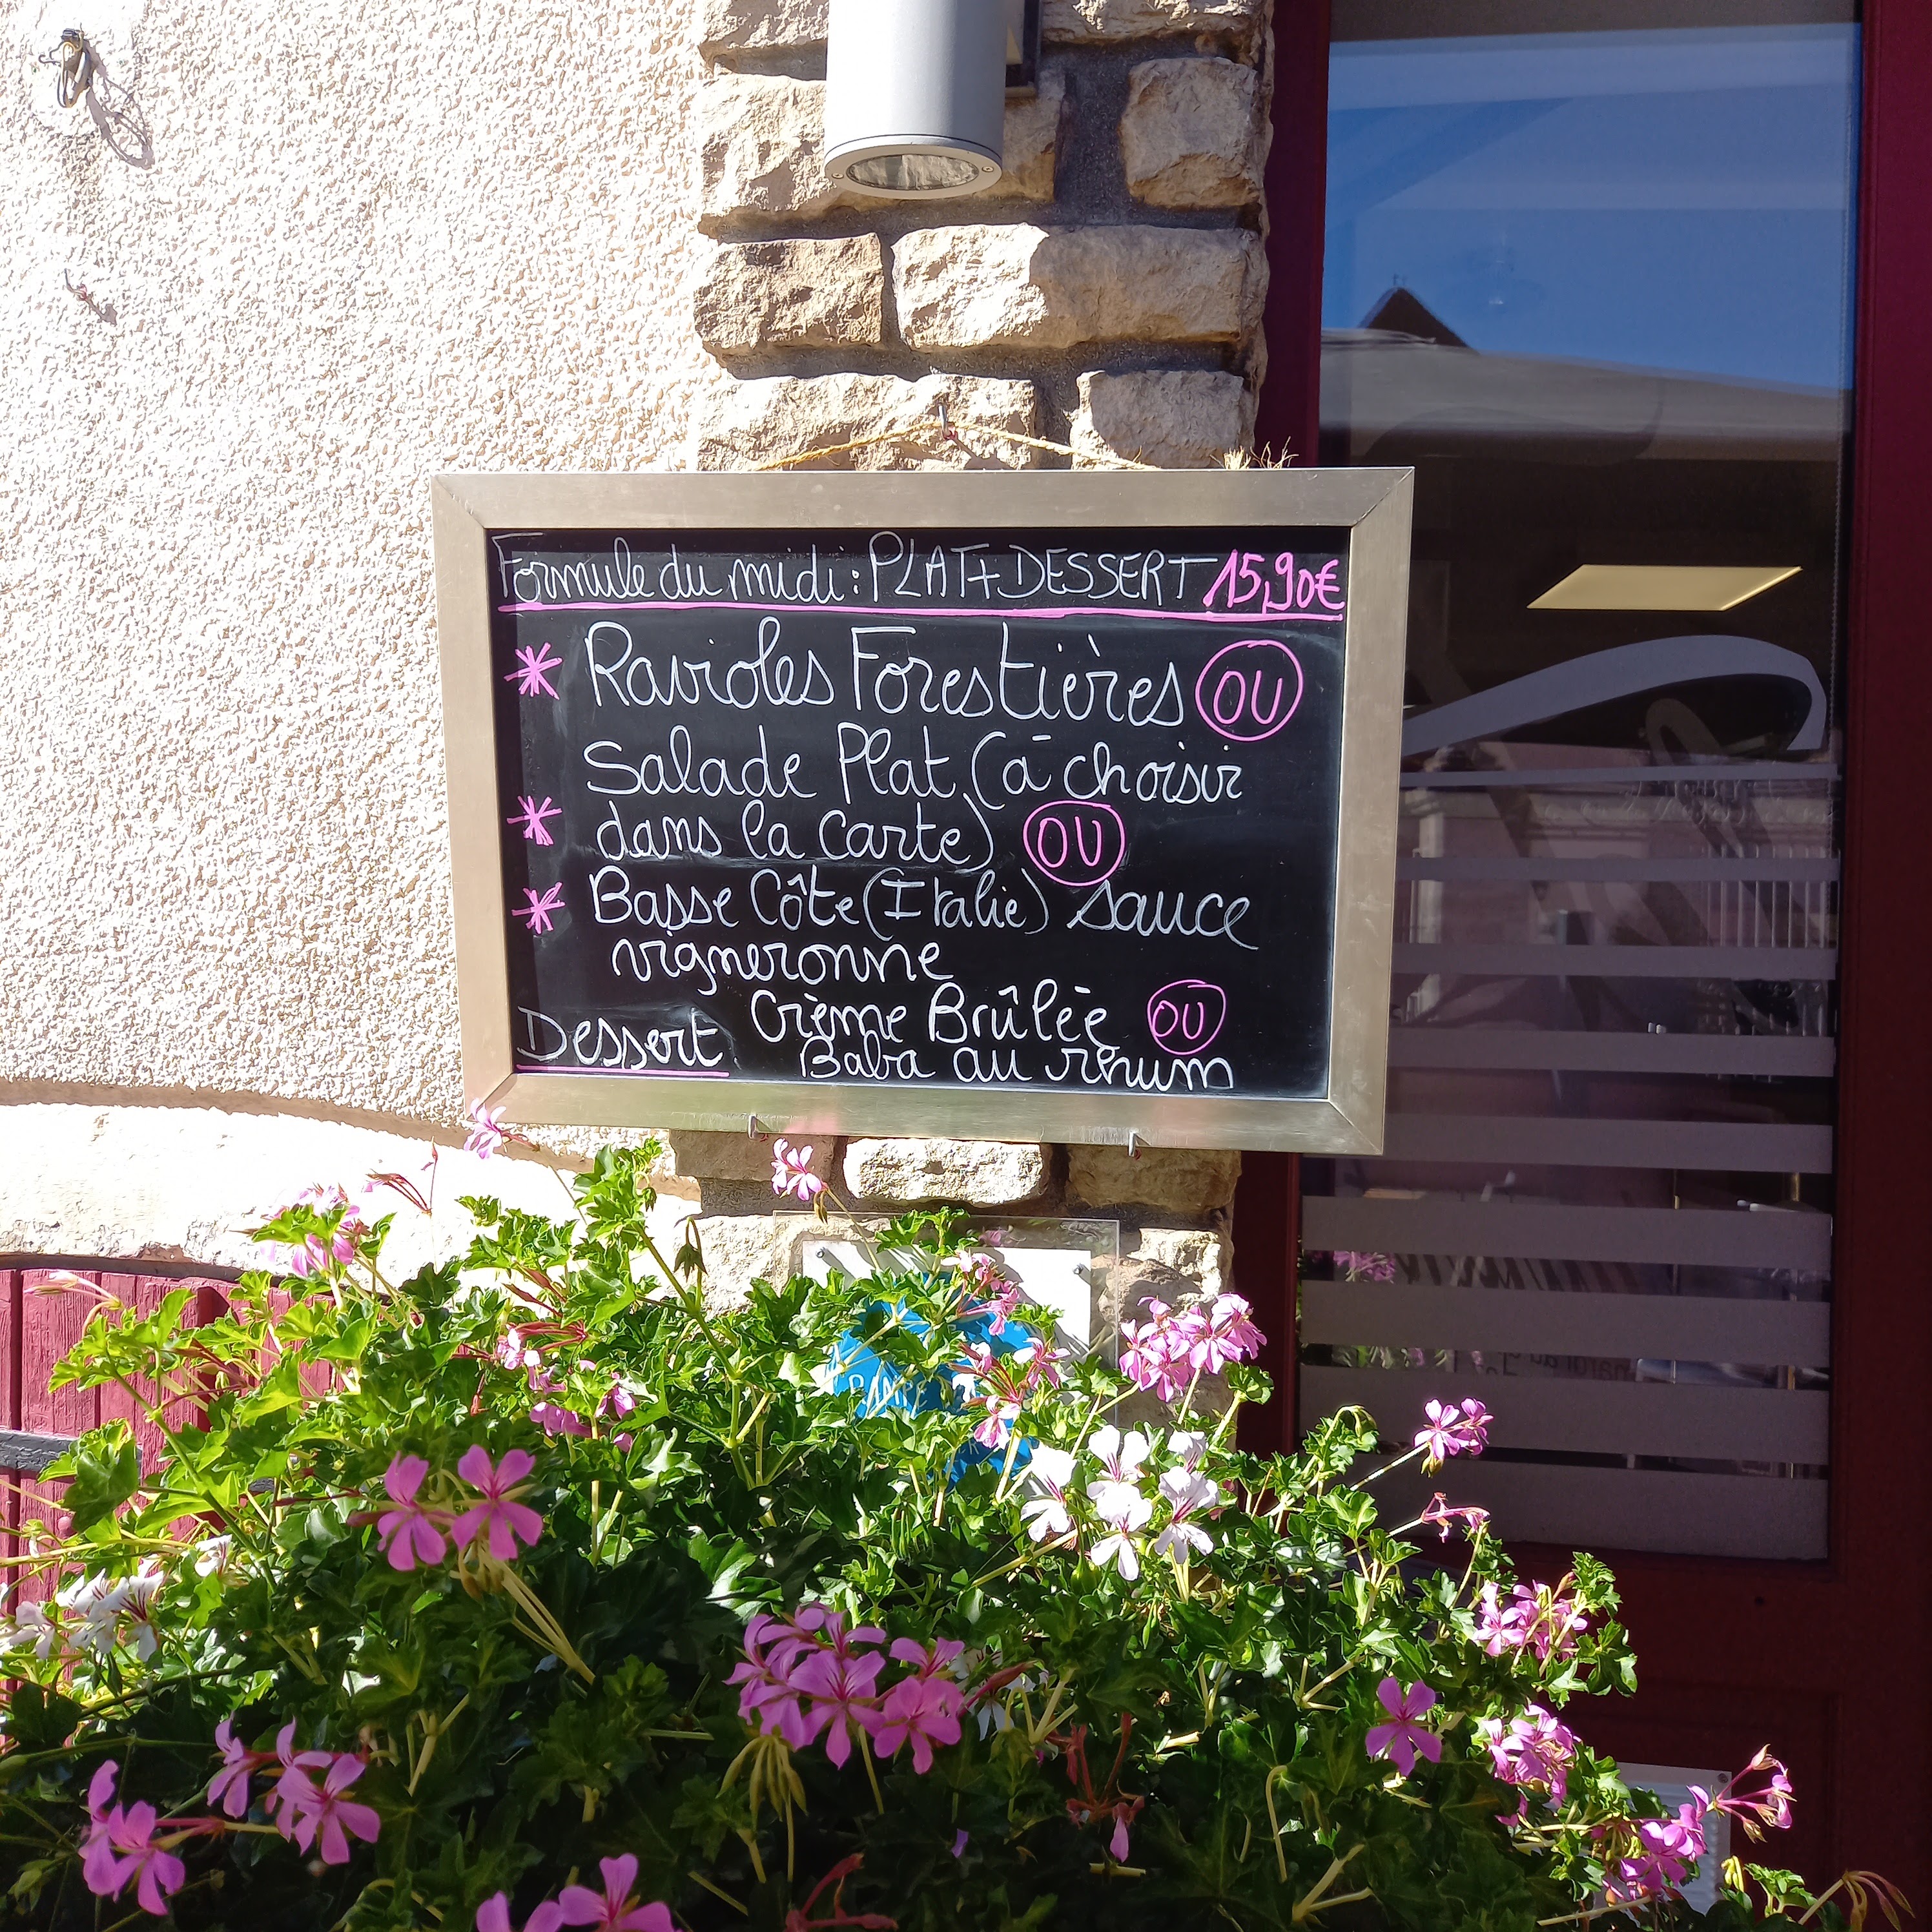 Formule du midi : PLAT + DESSERT 15,90€
* Ravioles Forestières OU
Salade Plat (à choisir
* dans la carte) OU
* Basse Côte (Italie) sauce
vigneronne
Crème Brûlée OU
Dessert Baba au rhum